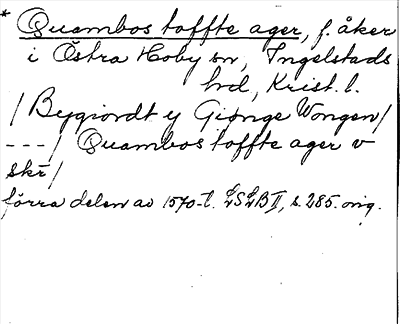 * Quambos toffte ager, f. åker
i Östra Hoby sn, Ingelstads
hd, Krist. l.
/ Bygiordt y Giønge Wongen/
---/ Quambos toffte ager v
skr/
förra delen av 1570-t. LSLB II, s. 285. orig.